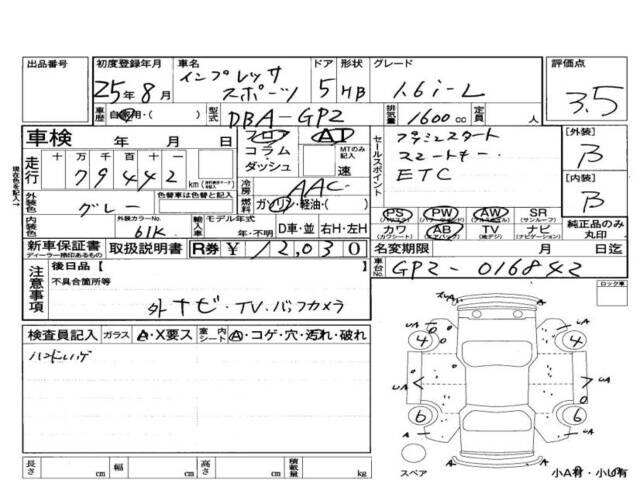 出品番号 初度登録年月 車名 ドア 形状 グレード 評価点
25年8月 インプレッサ スポーツ 5 HB 1.6i-L 3.5
車歴 自家用・( ) 型式 DBA-GP2 排気量 1600cc 定員 人
車検 年 月 日
フロア AT
コラム・ MTのみ記入
ダッシュ 速
セールスポイント
プッシュスタート
スマートキー
ETC
[外装] B
[内装] B
走行 十 万 千 百 十 一
79442 km
現状を記入→
冷房 AAC
外装色 グレー 色替車は色替と記入
燃料 ガソリン・軽油・( )
内装色 外装カラーNo. 61K 輸入車 モデル年式 年・不明 D車・並 右H・左H
PS PW AW SR
(パワステ) (サンルーフ)
カワ AB TV ナビ
(カワシート) (エアバッグ) (地デジ) (ナビゲーション)
純正品のみ
丸印
新車保証書 取扱説明書 R券 ¥12,030
ディーラー捺印あるもの
名変期限 月 日迄
車台No. GP2-016842
注意事項
後日品【 】
不具合箇所等
外ナビ・TV・バックカメラ
ロック車
検査員記入 ガラス A・X要ス 室内 シート A・コゲ・穴・汚れ・破れ
ハンドルハゲ
A
A
4 4
UA UA
6 6
A
スペア
小A有・小U有
長さ cm 幅 cm 高さ cm 積載量 kg